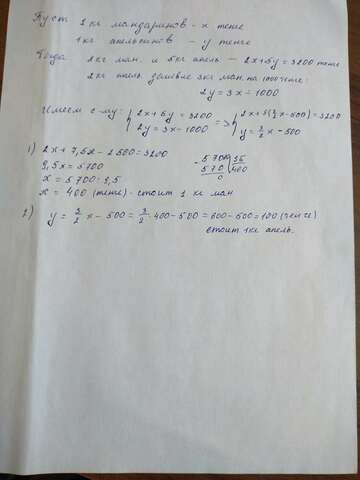 Пуст 1 кг мандаринов - x тенге
1 кг апельсинов - y тенге
Тогда
2 кг ман. и 5 кг апель - 2x+5y = 3200 тенге
2 кг апель. дешевле 3 кг ман. на 1000 тенге:
2y = 3x - 1000
Имеем с-му: { 2x+5y = 3200 => { 2x+5(3/2x-500)=3200
2y = 3x-1000 y = 3/2x - 500
1) 2x + 7,5x - 2500 = 3200
9,5x = 5700
x = 5700 : 9,5
x = 400 (тенге) - стоит 1 кг ман
2) y = 3/2x - 500 = 3/2·400-500 = 600-500 = 100 (тенге)
стоит 1кг апель.